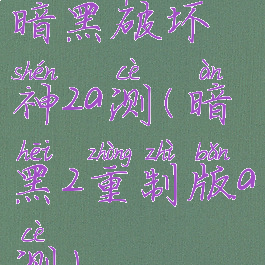 暗黑破坏
shén cè àn
神2a测(暗
hēi zhòng zhì bǎn
黑2重制版a
cè
测)